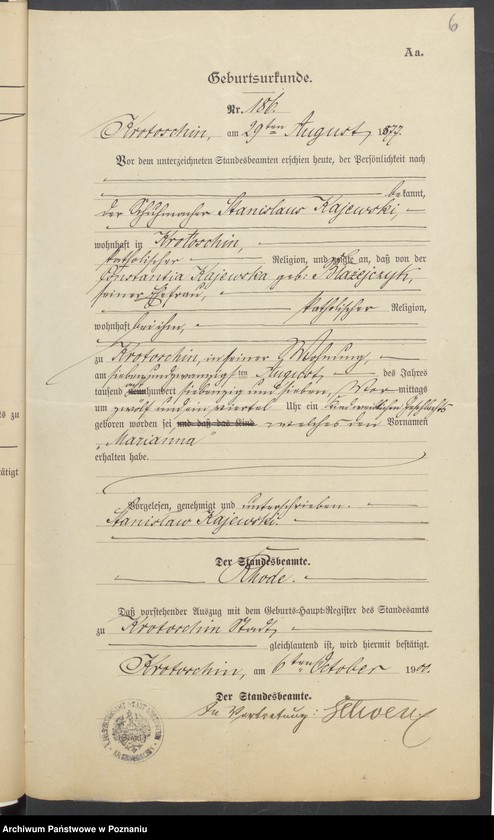 6
Aa.
Geburtsurkunde.
Nr. 186.
Krotoschin, am 29ten August 1877.
Vor dem unterzeichneten Standesbeamten erschien heute, der Persönlichkeit nach
bekannt,
der Schuhmacher Stanislaus Kajewski,
wohnhaft in Krotoschin,
katholischer Religion, und zeigte an, daß von der
Constantia Kajewska geb. Blazejczyk,
seiner Ehefrau,
katholischer Religion,
wohnhaft bei ihm,
zu Krotoschin, in seiner Wohnung,
am siebenundzwanzigsten August des Jahres
tausend achthundert siebenzig und sieben, Vormittags
um zwölf und ein viertel Uhr ein Kind weiblichen Geschlechts
geboren worden sei und daß das Kind welches den Vornamen
„Marianna"
erhalten habe.
Vorgelesen, genehmigt und unterschrieben.
Stanislaw Kajewski.
Der Standesbeamte.
Rhode.
Daß vorstehender Auszug mit dem Geburts-Haupt-Register des Standesamts
zu Krotoschin Stadt,
gleichlautend ist, wird hiermit bestätigt.
Krotoschin, am 6ten October 1900.
Der Standesbeamte.
In Vertretung:
es zu
tätigt
Archiwum Państwowe w Poznaniu
www.szukajwarchiwach.pl